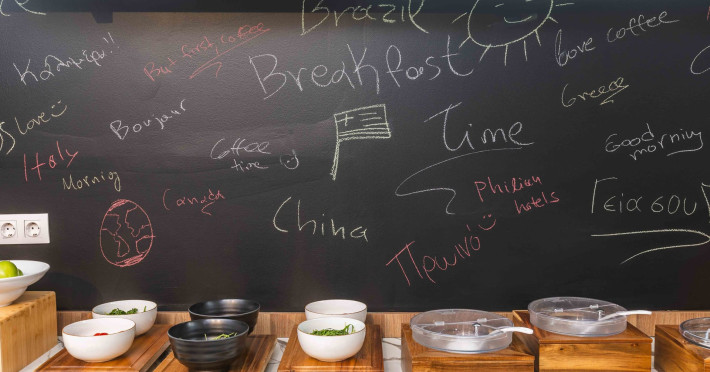 Brazil
Καλημέρα!!
But first, coffee
Breakfast
love coffee
Greece
love
Bonjour
Coffee
time
Time
Good
morning
Italy
Morning
Canada
China
Philian
hotels
Γειά σου
Πρωινό